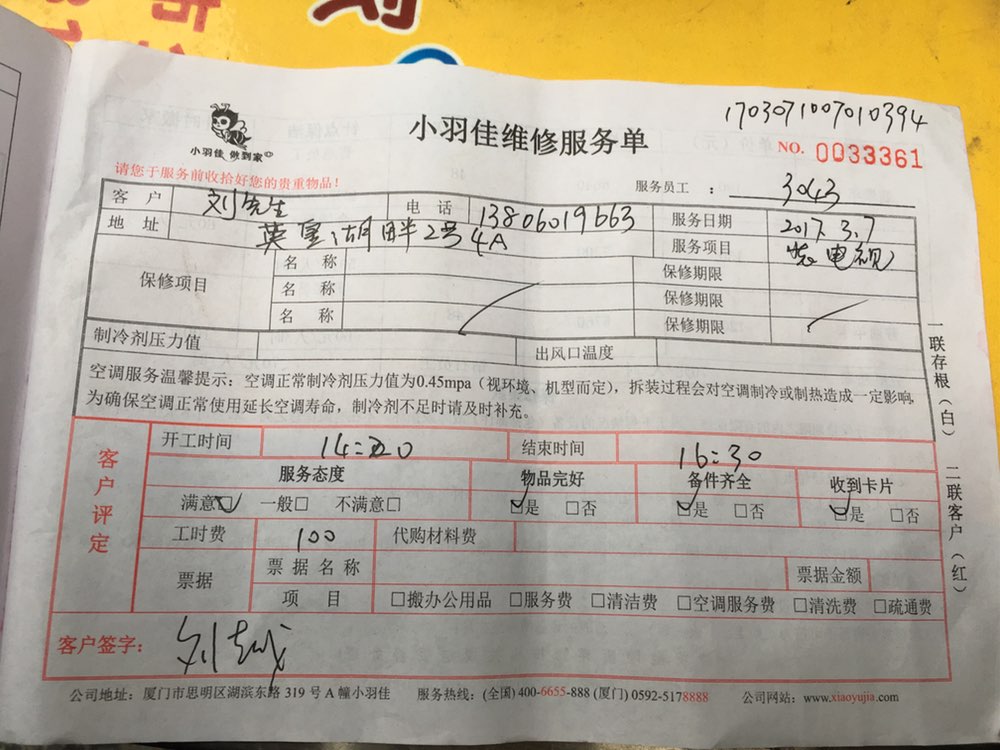 1703071007010394
小羽佳维修服务单
NO. 0033361
小羽佳 做到家
请您于服务前收拾好您的贵重物品!
服务员工 : 3043
客 户 刘先生 电 话 13806019663 服务日期 2017.3.7
地 址 湖畔2号4A 服务项目 装电视
保修项目 名 称 保修期限
名 称 保修期限
名 称 保修期限
制冷剂压力值 出风口温度
空调服务温馨提示:空调正常制冷剂压力值为0.45mpa(视环境、机型而定),拆装过程会对空调制冷或制热造成一定影响,
为确保空调正常使用延长空调寿命,制冷剂不足时请及时补充。
客户评定
开工时间 14:20 结束时间 16:30
服务态度 物品完好 备件齐全 收到卡片
满意☑ 一般□ 不满意□ ☑是 □否 ☑是 □否 ☑是 □否
工时费 100 代购材料费
票据 票据名称 票据金额
项 目 □搬办公用品 □服务费 □清洁费 □空调服务费 □清洗费 □疏通费
客户签字:
公司地址:厦门市思明区湖滨东路 319 号 A 幢小羽佳 服务热线:(全国) 400-6655-888 (厦门) 0592-5178888 公司网站:www.xiaoyujia.com
一联存根(白) 二联客户(红)